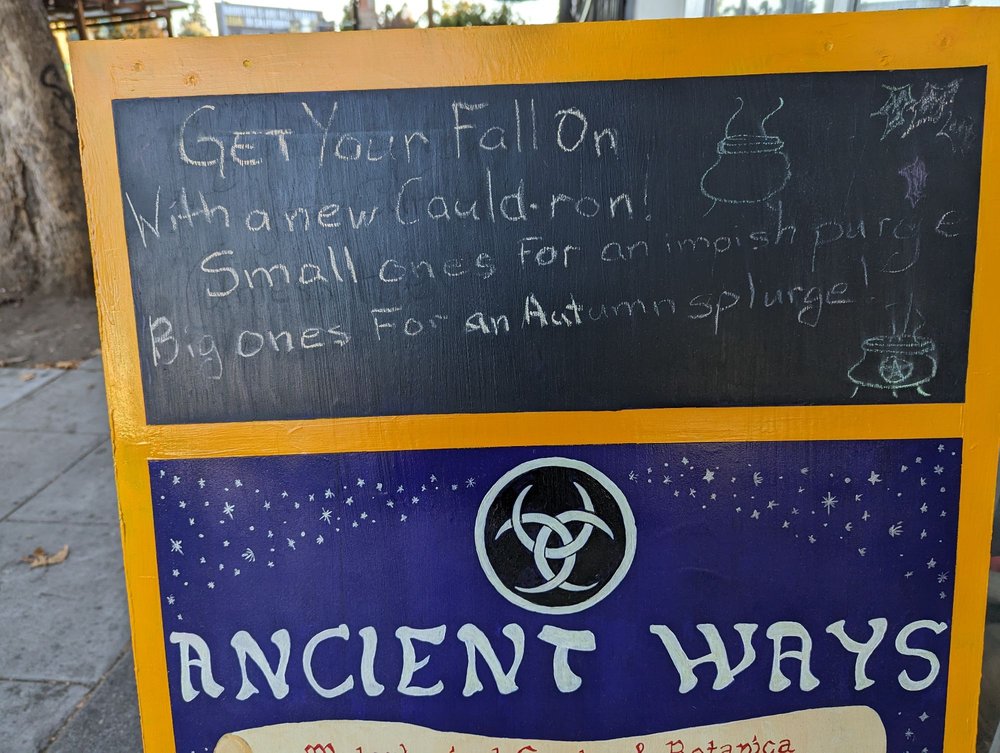 Get Your Fall On
With a new Cauld-ron!
Small ones For an impish purge
Big ones For an Autumn splurge!
ANCIENT WAYS
& Botanica